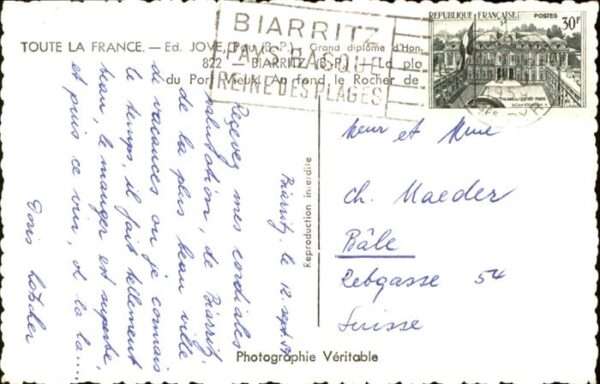 BIARRITZ
PAYS BASQUE
REINE DES PLAGES
REPUBLIQUE FRANÇAISE
POSTES
30F
TOUTE LA FRANCE. — Ed. JOVE, Pau (B.-P.) Grand diplôme d'Hon.
822 — BIARRITZ (B.-P.) — La
du Port Vieux. Au fond, le Rocher de
Reproduction interdite
Biarritz, le 12 sept.
Reçevez mes cordiales
salutations, de Biarritz,
de la plus beau ville
de vacances ou je connais
le temps, il fait tellement
beau, le manger est superbe,
et puis ce vin, o la la....
Doris
Mr et Mme
Ch. Maeder
Bâle
Rebgasse 54
Suisse
Photographie Véritable